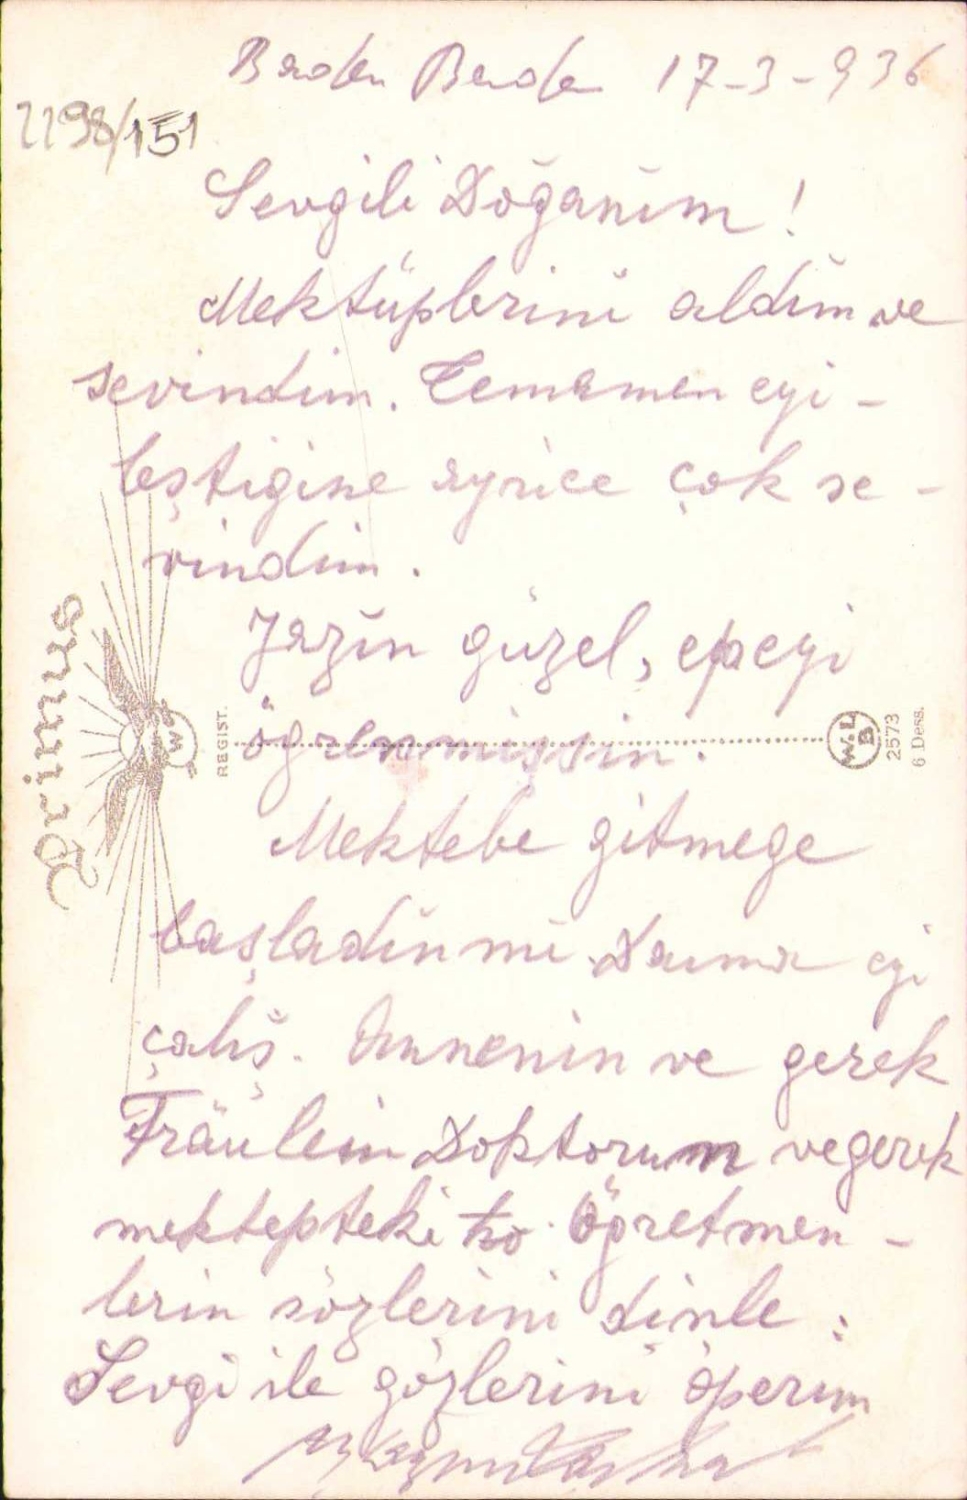 Baden Baden 17-3-936
2298/151
Sevgili Doğanım!
Mektüplerini aldım ve
sevindim. Temamen eyi-
leştigine ayrice çok se-
vindim.
Yazın güzel, epeyi
ögrenmişsin.
Mektebe gitmege
başladın mi. Daima eyi
çalış. Annenin ve gerek
Fräulein Doktorum ve gerek
mektepteki Ögretmen-
lerin sözlerini dinle.
Sevgi ile gözlerini öperim
Trinks
W
REGIST.
W.L.B
2573
6 Dess.